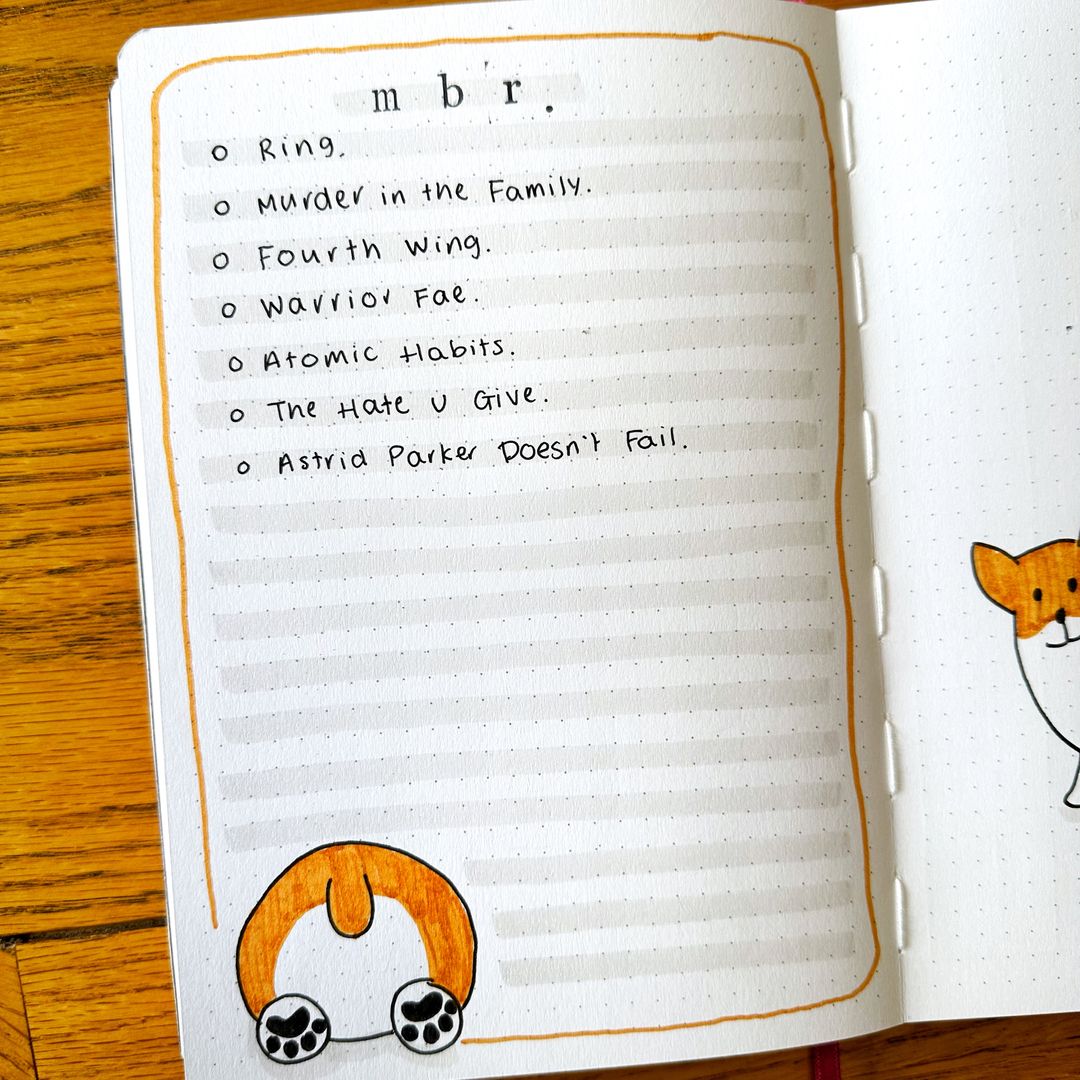 m b r .
o Ring.
o Murder in the Family.
o Fourth Wing.
o Warrior Fae.
o Atomic Habits.
o The Hate U Give.
o Astrid Parker Doesn't Fail.